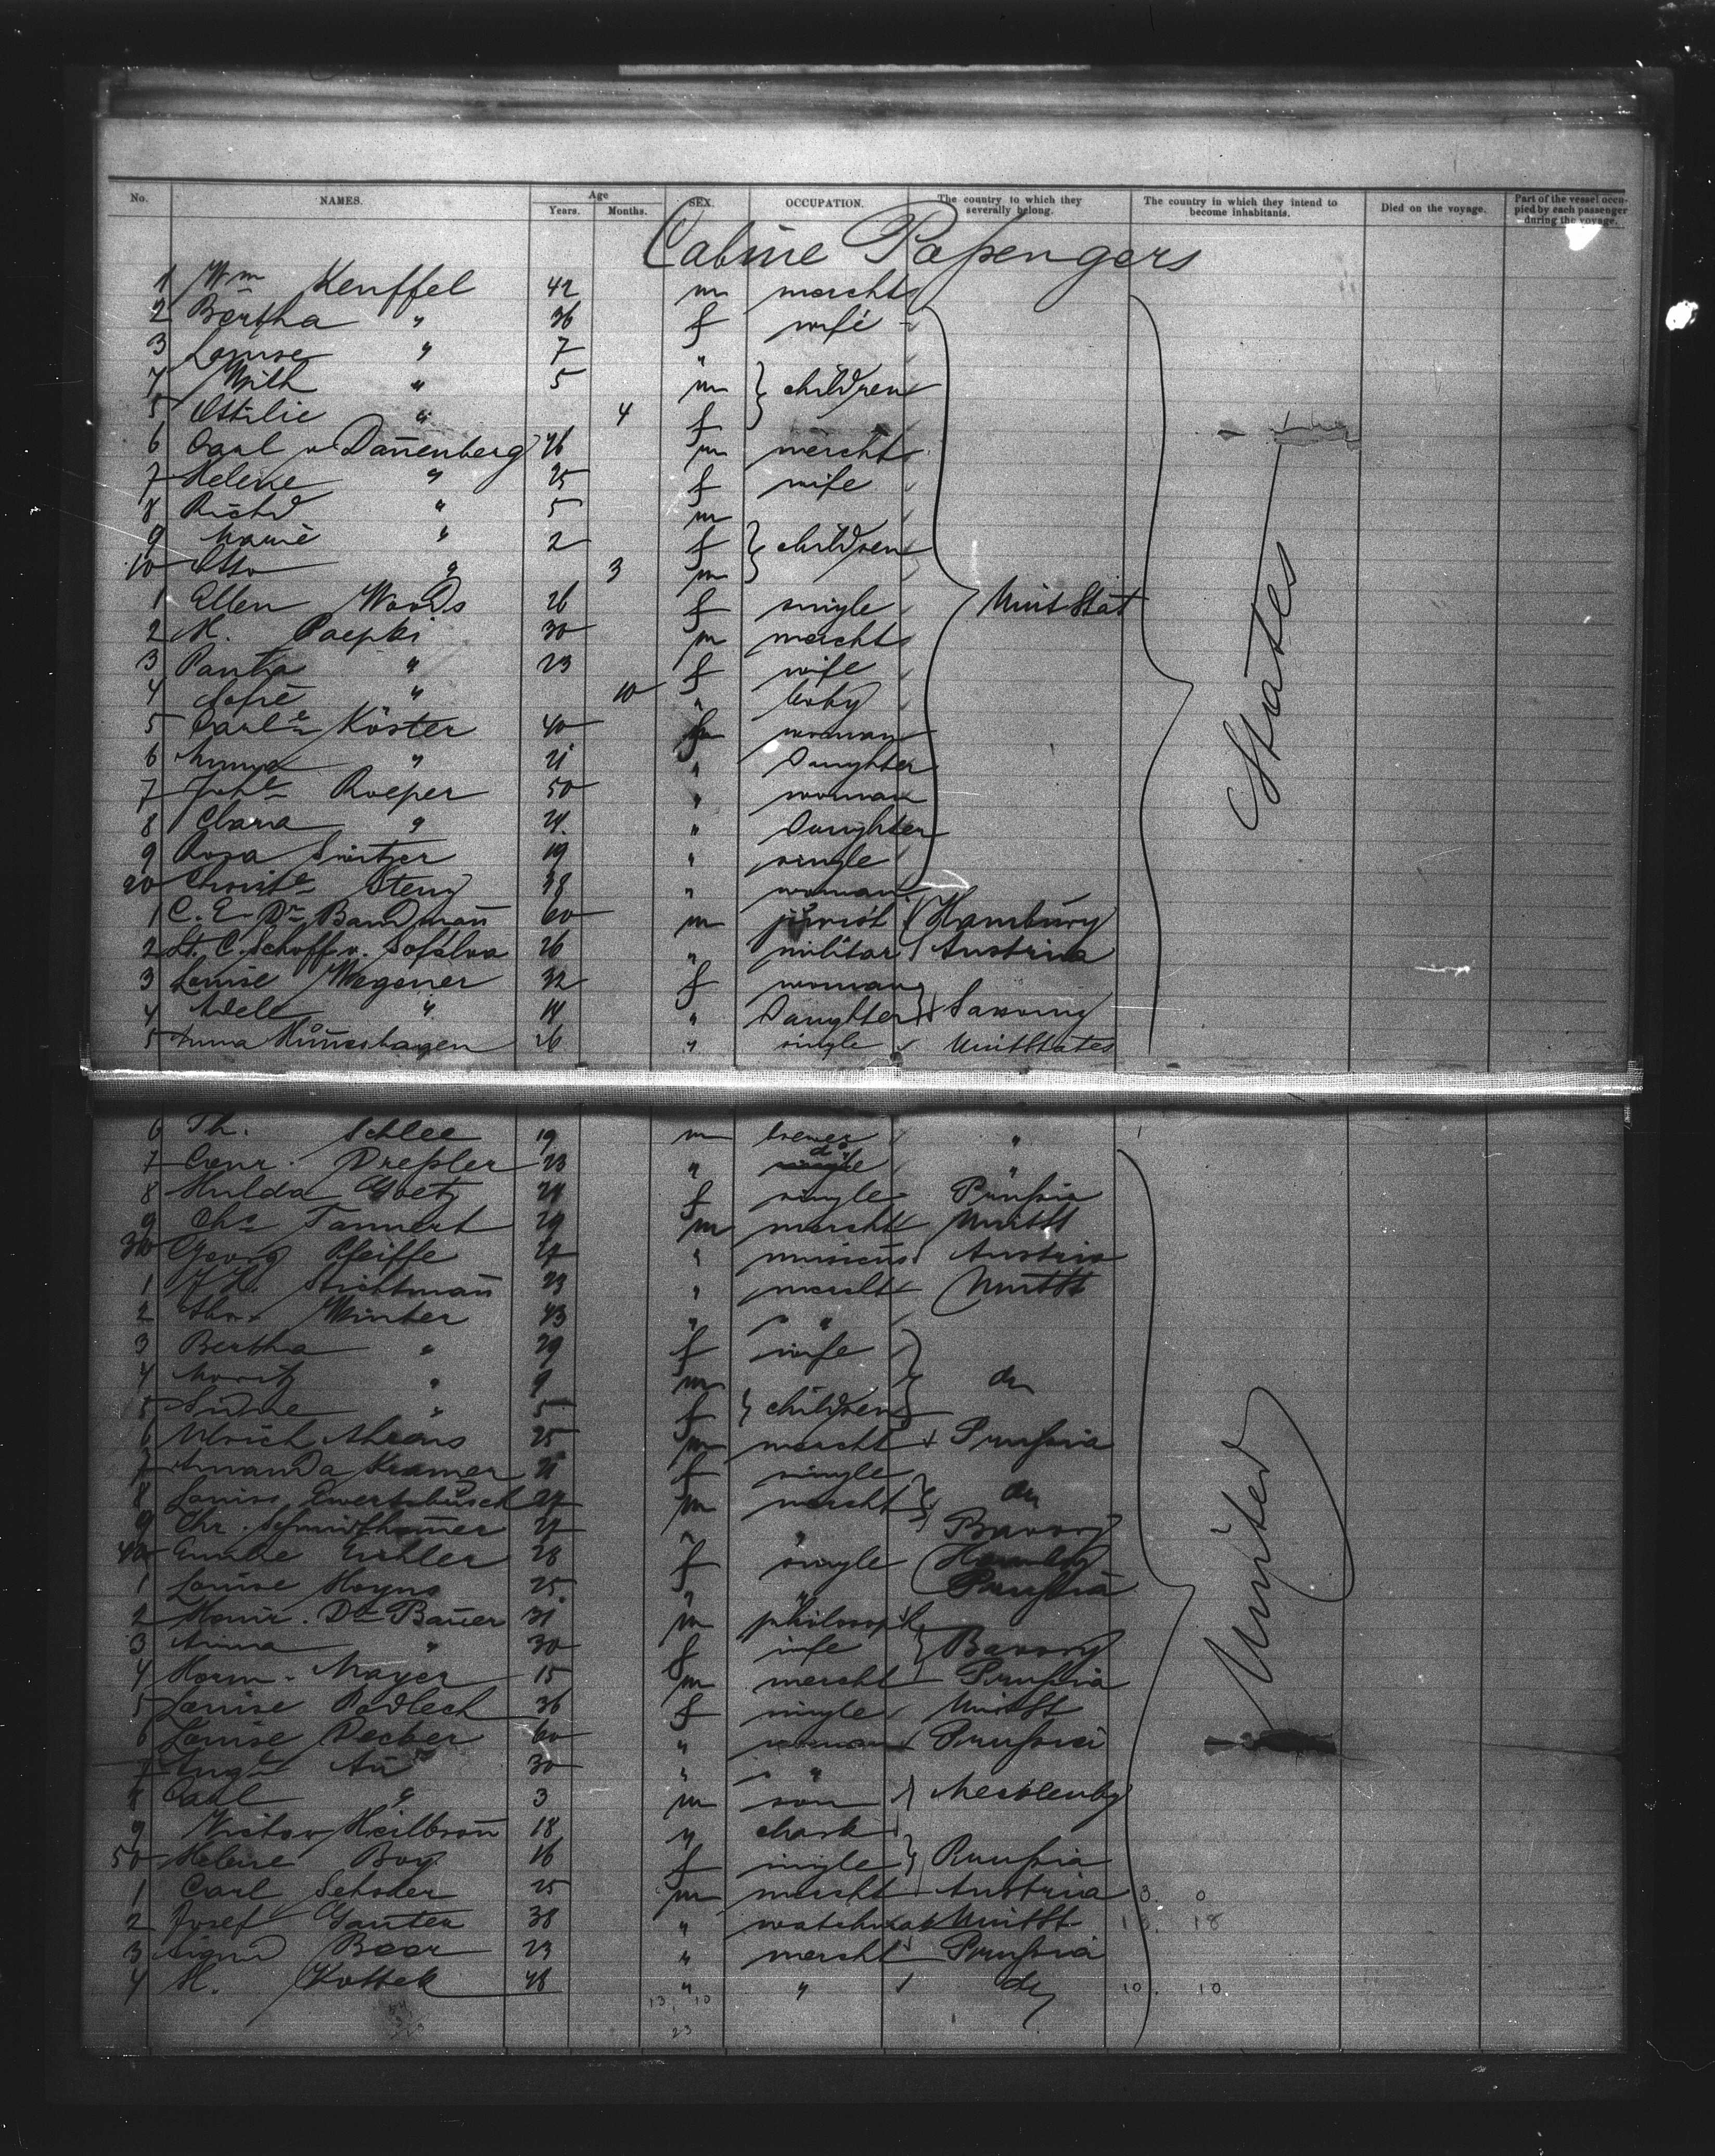 No. NAMES. Age Years. Months. SEX. OCCUPATION. The country to which they severally belong. The country in which they intend to become inhabitants. Died on the voyage. Part of the vessel occupied by each passenger during the voyage.
Cabine Paßengers
1 Wm Keuffel 42 m merchts
2 Bertha " 36 f wife
3 Louise " 7 "
4 Wilh " 5 m children
5 Ottilie " 4 f
6 Carl v. Dan̄enberg 26 m mercht
7 Helene " 25 f wife
8 Richd " 5 m
9 Marie " 2 f children
10 Otto " 3 m
1 Ellen Woods 26 f single Unit Stat
2 H. Paepki 30 m merchts
3 " 23 f wife
4 Sofie " 10 " baby
5 Carle Köster 40 f woman
6 Anna " 21 " Daughter
7 Johe Roeper 50 " woman
8 Clara " 24 " Daughter
9 Rosa 19 " single
20 Christe 38 " woman
1 C. E. Dr Bandman̄ 60 m jurist Hamburg
2 Lt. C. Schoff v. 26 " militär Austria
3 Louise Wegener 32 f woman
4 Adele " 14 " Daughter Saxony
5 Anna 26 " single UnitStates
States
6 Th. Schlee 19 m brewer "
7 Conr. Dreßler 23 " do "
8 Hulda Goetz 24 f single Prußia
9 Chs Tannert 29 m mercht UnitSt
30 Georg Pfeiffe 27 " musicus Austria
1 Strictman̄ 23 " mercht UnitSt
2 Winter 43 " " "
3 Bertha " 29 f wife
4 Moritz " 9 m do
5 " 5 f children
6 Ulrich Ahrens 25 m mercht Prußia
7 Amanda Kramer 21 f single
8 Louis Ewertsbusch 27 m mercht do
9 Chr. 27 " " Bavary
40 Emilie 28 f single Hambg
1 Louise 25 " " Prußia
2 Heinr. Dr Bauer 31 m philosoph
3 Anna " 30 f wife Bavary
4 Herm. Mayer 15 m mercht Prußia
5 Louise Radlech 36 f single UnitSt
6 Louise Decker 60 " woman Prußia
7 Auge Au 30 " " "
8 Carl " 3 m son Mecklenbg
9 Victor Heilbron̄ 18 "
50 Helene Boy 16 f single Prußia
1 Carl Schoder 25 m mercht Austria 3. 0
2 Josef Ganter 38 " UnitSt 18
3 Baer 23 " mercht Prußia
4 H. Kottek 48 " " do 10. 10
United
13, 10
23